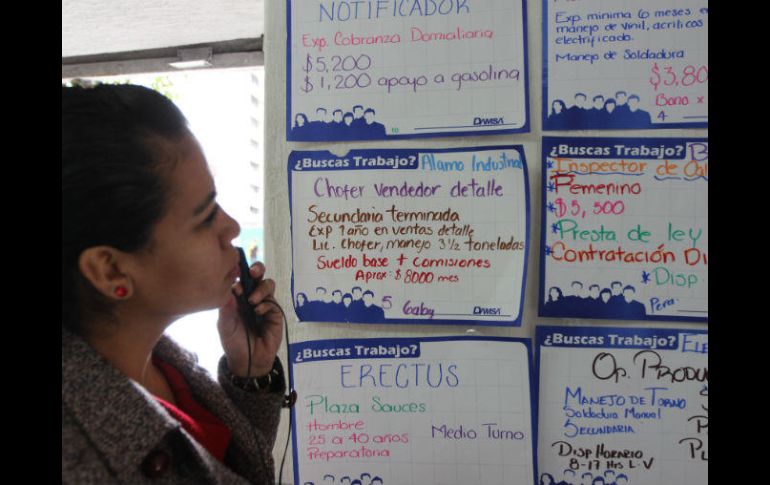 NOTIFICADOR
Exp. Cobranza Domiciliaria
$5,200
$1,200 apoyo a gasolina
10
DAMSA
Exp. minima 6 meses en
manejo de vinil, acrilicos
electrificado.
Manejo de Soldadura
$3,80
Bono x
4
¿Buscas Trabajo? Alamo Industrial
Chofer vendedor detalle
Secundaria terminada
Exp 1 año en ventas detalle
Lic. Chofer, manejo 3 1/2 toneladas
Sueldo base + comisiones
Aprox: $8000 mes
5 Gaby
DAMSA
¿Buscas Trabajo?
*Inspector de Cal
*Femenino
*$5,500
*Presta de ley
*Contratación Di
*Disp
Pera
¿Buscas Trabajo?
ERECTUS
Plaza Sauces
Hombre
25 a 40 años
Preparatoria
Medio Turno
¿Buscas Trabajo? Ele
Op. Produ
Manejo de Torno
Soldadura Manual
Secundaria
Disp Horario
8-17 Hrs L-V